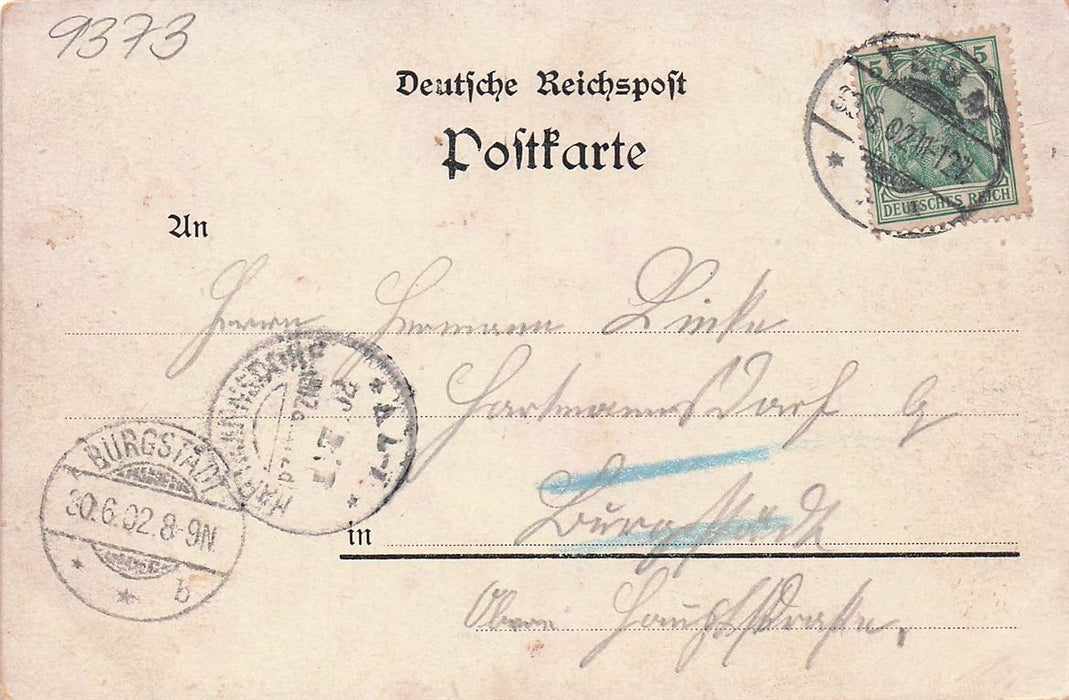 9373
Deutsche Reichspost
Postkarte
5 5
DEUTSCHES REICH
An
Herrn Hermann Linke
Hartmannsdorf
BURGSTÄDT
30.6.02.8-9N.
b
in Burgstädt
Obere Hauptstraße.